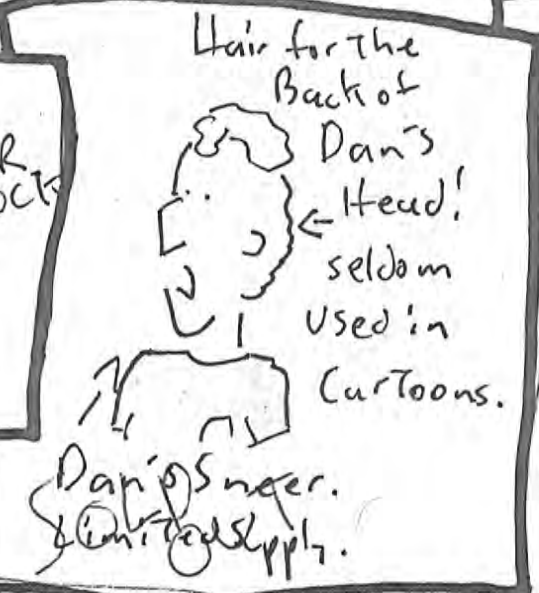 Hair for The
Back of
Dan's
Head!
seldom
Used in
CarToons.
Dan's Sneer.
Limited Supply.